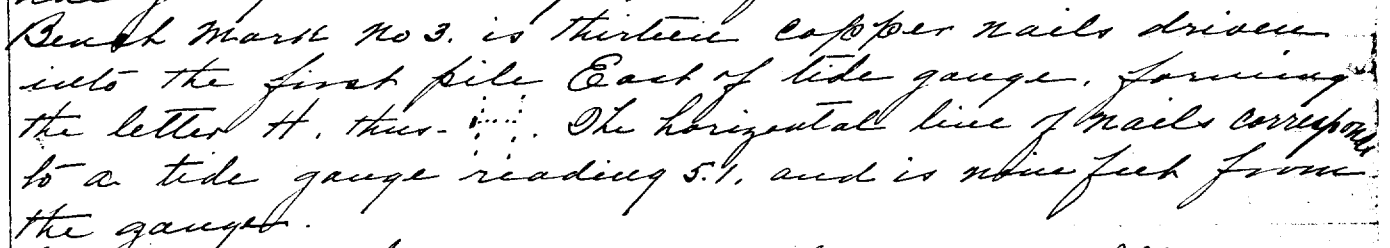 Bench Mark No 3. is thirteen copper nails driven
into the first pile East of tide gauge, forming
the letter H, thus- . The horizontal line of nails corresponds
to a tide gauge reading 5.1, and is nine feet from
the gauge.